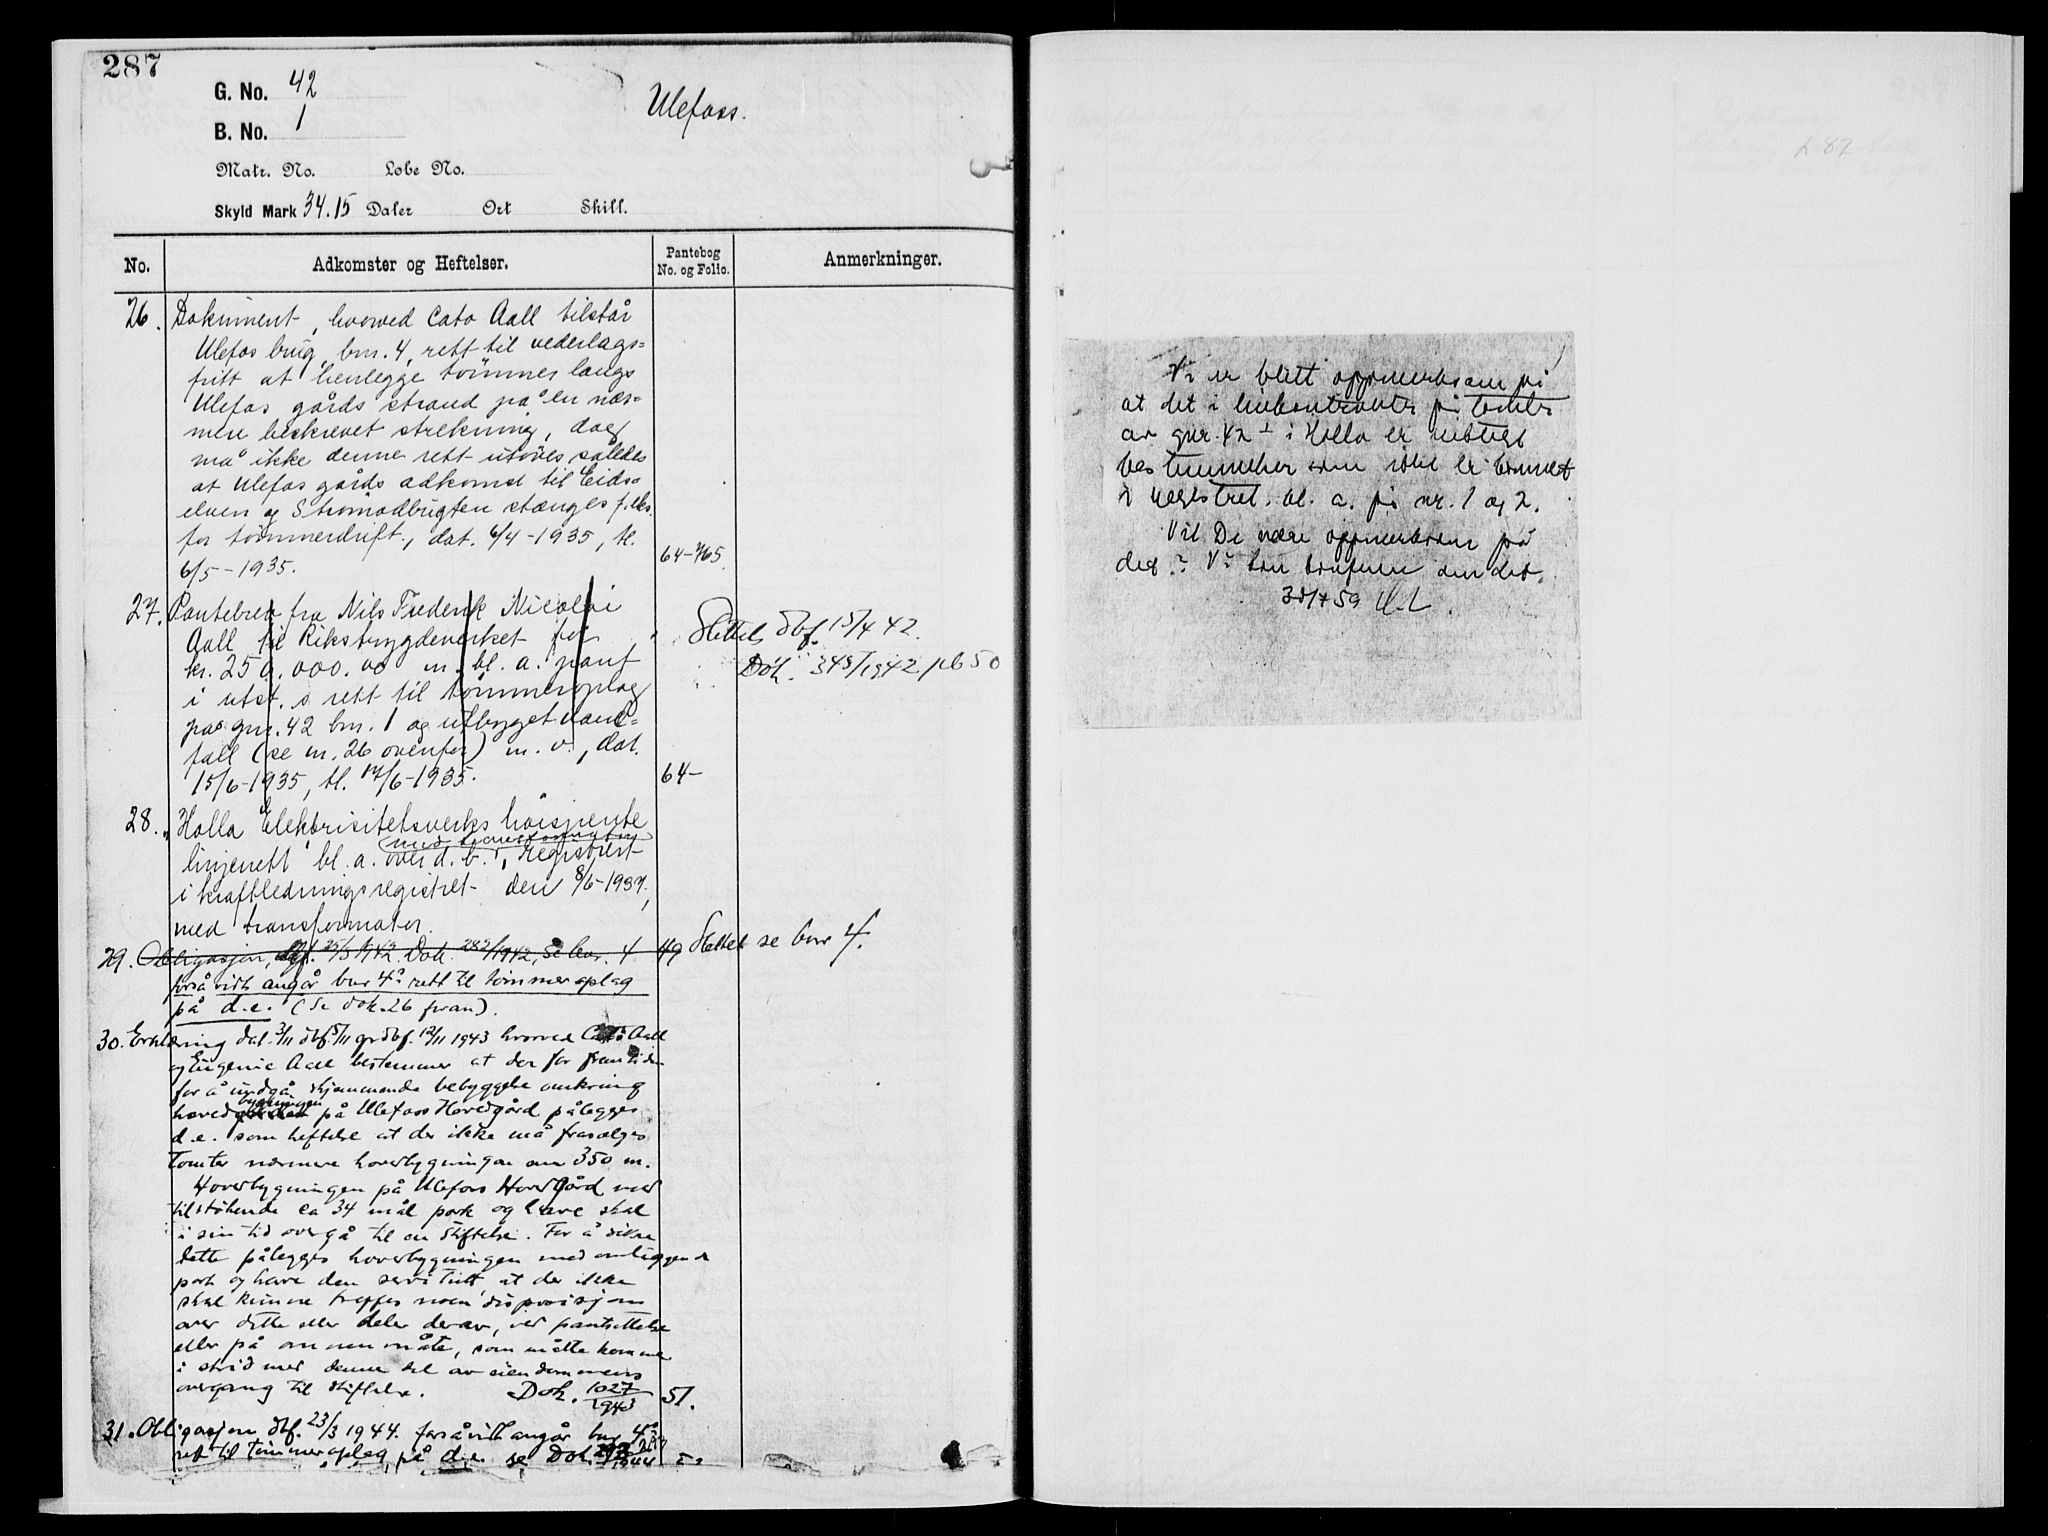 287
G. No. 42
B. No. 1
Ulefoss.
Matr. No. Løbe No.
Skyld Mark 34.15 Daler Ort Skill.
No. Adkomster og Heftelser. Pantebog No. og Folio. Anmerkninger.
26. Dokument, hvorved Cato Aall tilstår
Ulefos brug, bnr. 4, rett til vederlags=
fritt at henlegge tømmer langs
Ulefos gårds strand på en nær=
mere beskrevet strekning, dog
må ikke denne rett utøves således
at Ulefos gårds adkomst til Eids=
elven og Strømodbugten stænges f. eks.
for tømmerdrift, dat. 6/4-1935, tl.
6/5-1935. 64-765.
27. Pantebrev fra Nils Frederik Nicolai
Aall til Rikstrygdeverket for
kr. 250.000.00 m. bl. a. pant
i utst. s rett til tømmeroplag
på gnr. 42 bnr. 1 og utbygget vand=
fall (se nr. 26 ovenfor) m. v., dat.
15/6-1935, tl. 17/6-1935. 64-
Slettet dbf. 15/4 42.
Dok. 345/1942. pb 50
28. Holla Elektrisitetsverks høispente
med transformator
linjenett bl. a. over d. b., registrert
i kraftledningsregistret den 8/6-1937,
med transformator.
29. Obligasjon, dbf. 25/3 1942. Dok. 282/1942, Se bnr. 4 49 Slettet se bnr 4.
forså vidt angår bnr 4s rett til tømmeroplag
på d.e. (Se dok. 26 foran).
30. Erklæring dat. 3/11 dbf. 5/11 grdbf. 12/11 1943 hvorved Cato Aall
og Eugenie Aall bestemmer at der for fremtiden
for å undgå skjemmende bebyggelse omkring
bygningen
hovedgården på Ulefoss Hovedgård pålegges
d.e. som heftelse at der ikke må frasælges
tomter nærmere hovedbygningen enn 350 m.
Hovedbygningen på Ulefoss Hovedgård med
tilstøtende ca 34 mål park og have skal
i sin tid overgå til en stiftelse. For å sikre
dette pålegges hovedbygningen med omliggende
park og have den servitutt at der ikke
skal kunne treffes noen disposisjon
over dette eller deler derav, ved pantsettelse
eller på annen måte, som måtte komme
i strid med denne del av eiendommens
overgang til stiftelse. Dok. 1027/1943 51.
31. Obligasjon dbf. 23/3 1944. forsåvidt angår bnr 4s
rett til tømmeroplag på d.e. se Dok.
287
Vi er blitt oppmerksom på
at det i livkontrakter på
av gnr. 42 1 i Holla er
bestemmelser som ikke er kommet
i registret, bl. a. på nr. 1 og 2.
Vil De være oppmerksom på
det? Vi kan konferere om det.
59